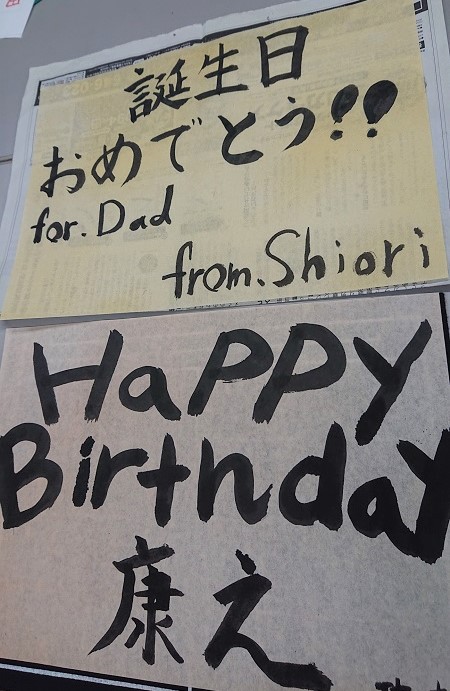 誕生日
おめでとう!!
for.Dad
from.Shiori
Happy
Birthday
康え